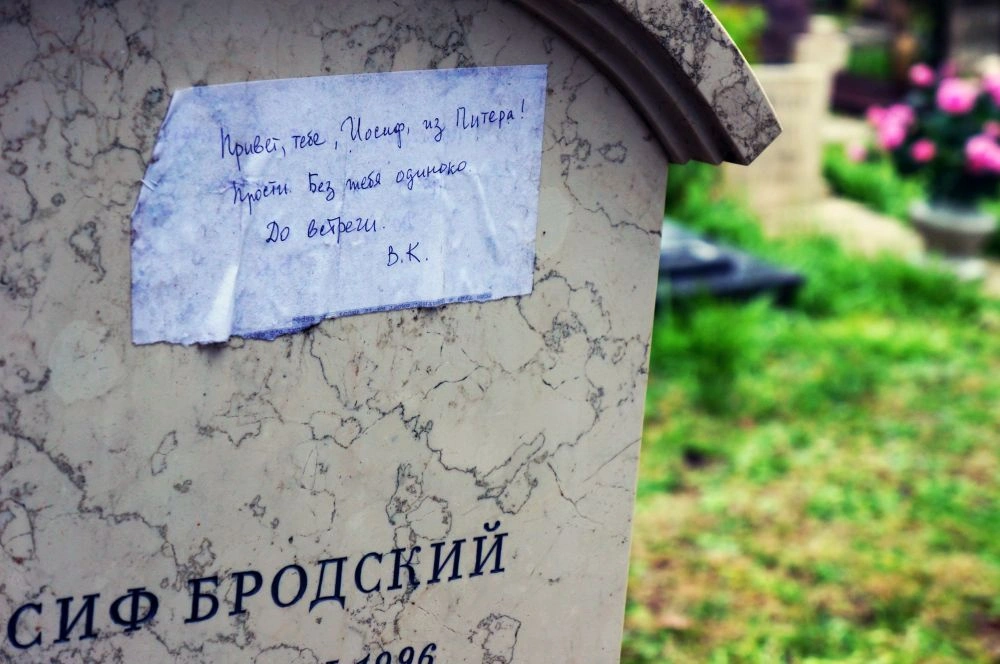 Привет, тебе, Иосиф, из Питера!
Прости. Без тебя одиноко
До встречи.
В.К.
СИФ БРОДСКИЙ
1996